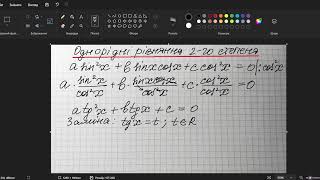 Однорідні рівняння 2-го степеня
a sin²x + b sinx cosx + c cos²x = 0 |: cos²x
a · sin²x/cos²x + b · sinxcosx/cos²x + c · cos²x/cos²x = 0
a tg²x + b tgx + c = 0
Заміна: tgx = t; t∈R